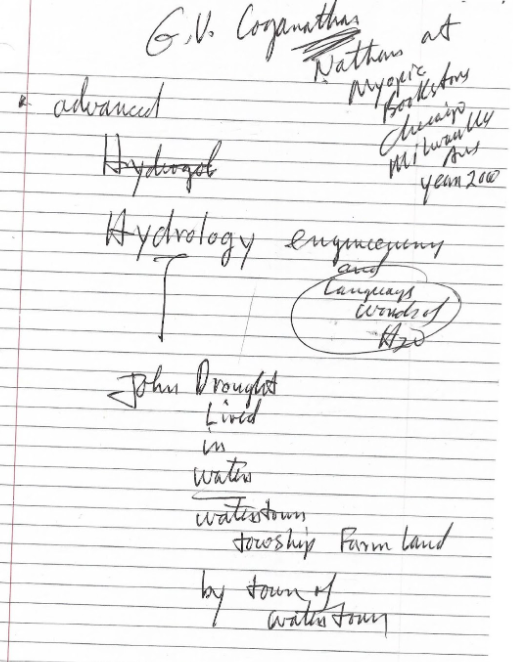 G.V. Coganathan
Nathans at
Myopic
Bookstore
Chicago
Milwaukee
Ave
year 2000
advanced
Hydrogol
Hydrology engineering
and
Languages
words of
H2O
John Drought
Lived
in
water
watertown
towship Farm Land
by town of
watertown